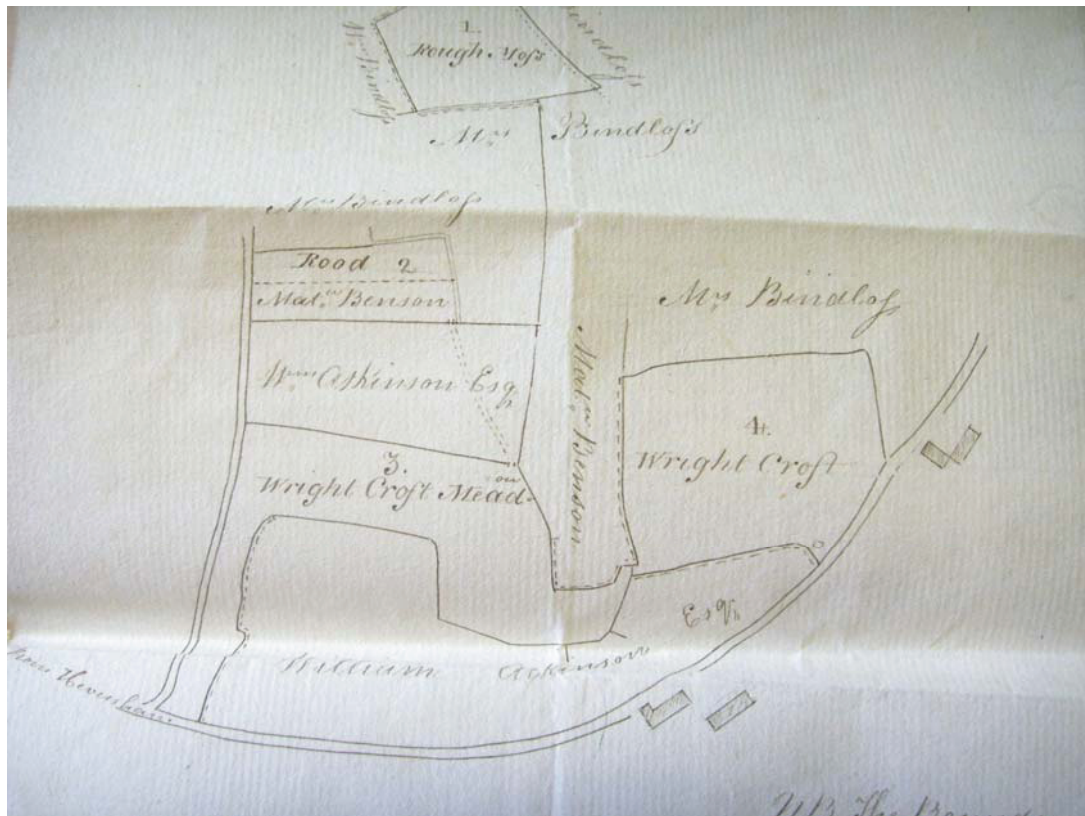 1
Rough Moss
Wm. Bindloss
Bindloss
Mrs. Bindloss
Mrs. Bindloss
Rood 2
Matw. Benson
Mrs. Bindloss
Wm. Atkinson Esqr.
Matw. Benson
4.
Wright Croft
3.
Wright Croft Mead-
ow
William Atkinson Esqr.
from
N.B. The